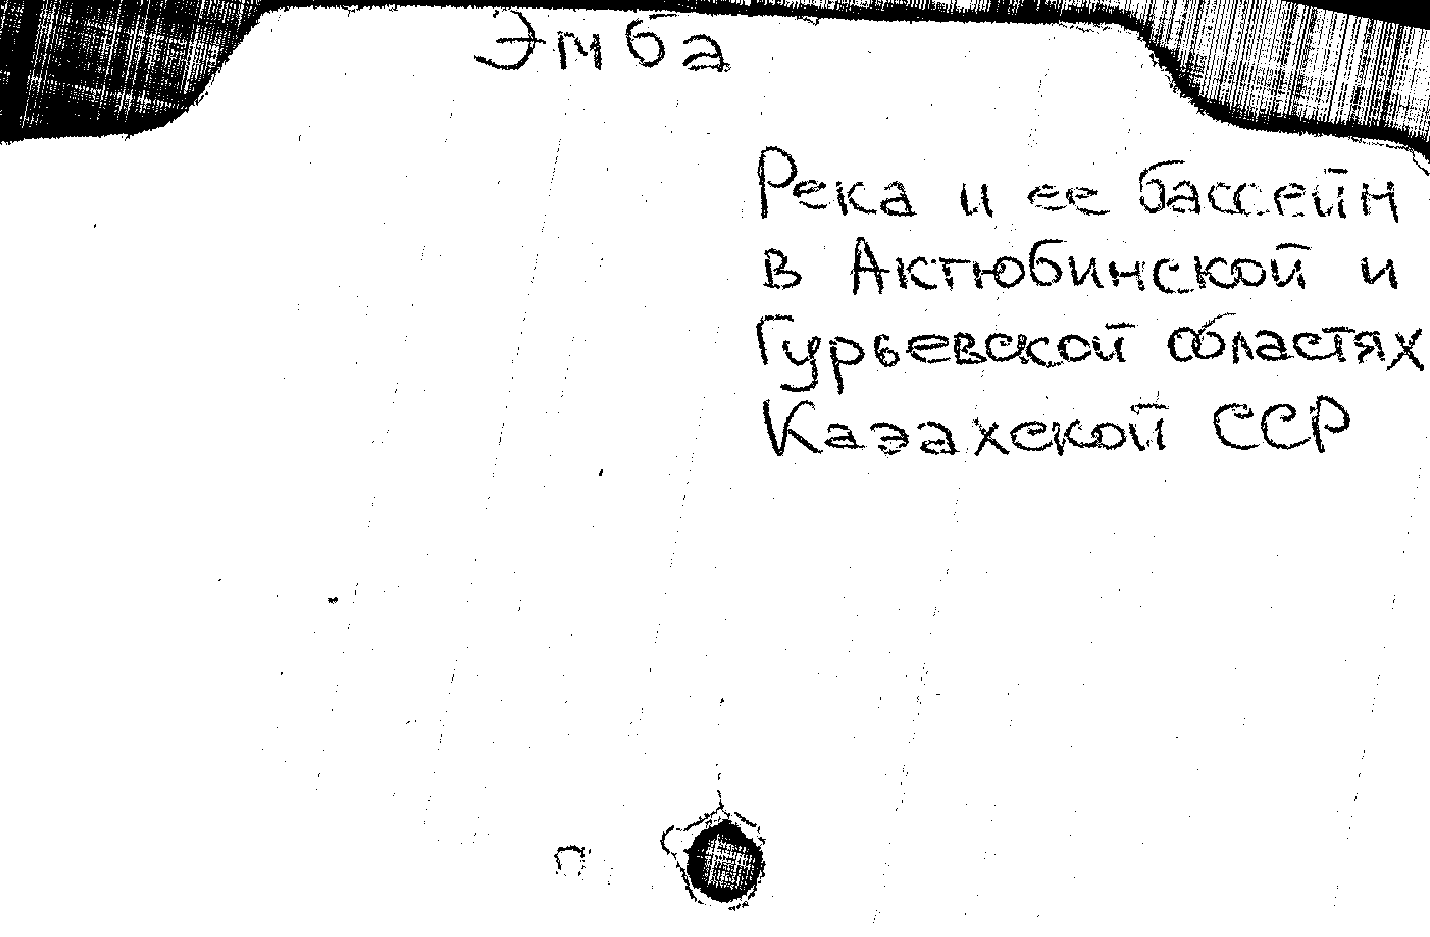 Эмба
Река и ее бассейн
в Актюбинской и
Гурьевской областях
Казахской ССР
п